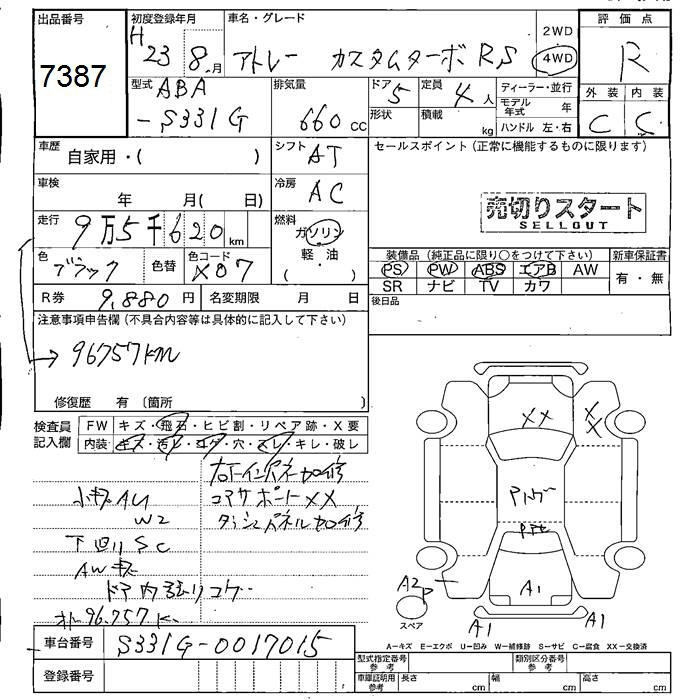 出品番号 初度登録年月 車名・グレード 2WD 評価点
7387 H 23 8月 アトレー カスタムターボRS 4WD R
型式 ABA 排気量 ドア 5 定員 4人 ディーラー・並行 外装 内装
-S331G 660cc 形状 積載 kg モデル年式 年 ハンドル 左・右 C C
車歴 自家用・( ) シフト AT セールスポイント (正常に機能するものに限ります)
車検 年 月( 日) 冷房 AC
売切りスタート
SELLOUT
走行 9万5千620km 燃料 ガソリン
軽・油
( )
色 ブラック 色替 色コード X07
装備品 (純正品に限り○をつけて下さい) 新車保証書
PS PW ABS エアB AW 有・無
SR ナビ TV カワ
R券 9,880円 名変期限 月 日 後日品
注意事項申告欄 (不具合内容等は具体的に記入して下さい)
96757km
修復歴 有 〔箇所 〕
検査員記入欄 FW キズ・飛石・ヒビ割・リペア跡・X要
内装 キズ・汚れ・コゲ・穴・スレ・キレ・破レ
右下インパネ加修
小キズAU コアサポートXX
W2 ダッシュパネル加修
下回りSC
AWキズ
ドア内張りコゲ
96,757K
XX
X
X
A2
P
A1
スペア
A1
A1
車台番号 S331G-0017015
A−キズ E−エクボ U−凹み W−補修跡 S−サビ C−腐食 XX−交換済
登録番号 型式指定番号 参考 類別区分番号 参考
車庫証明用 参考 長さ cm 幅 cm 高さ cm